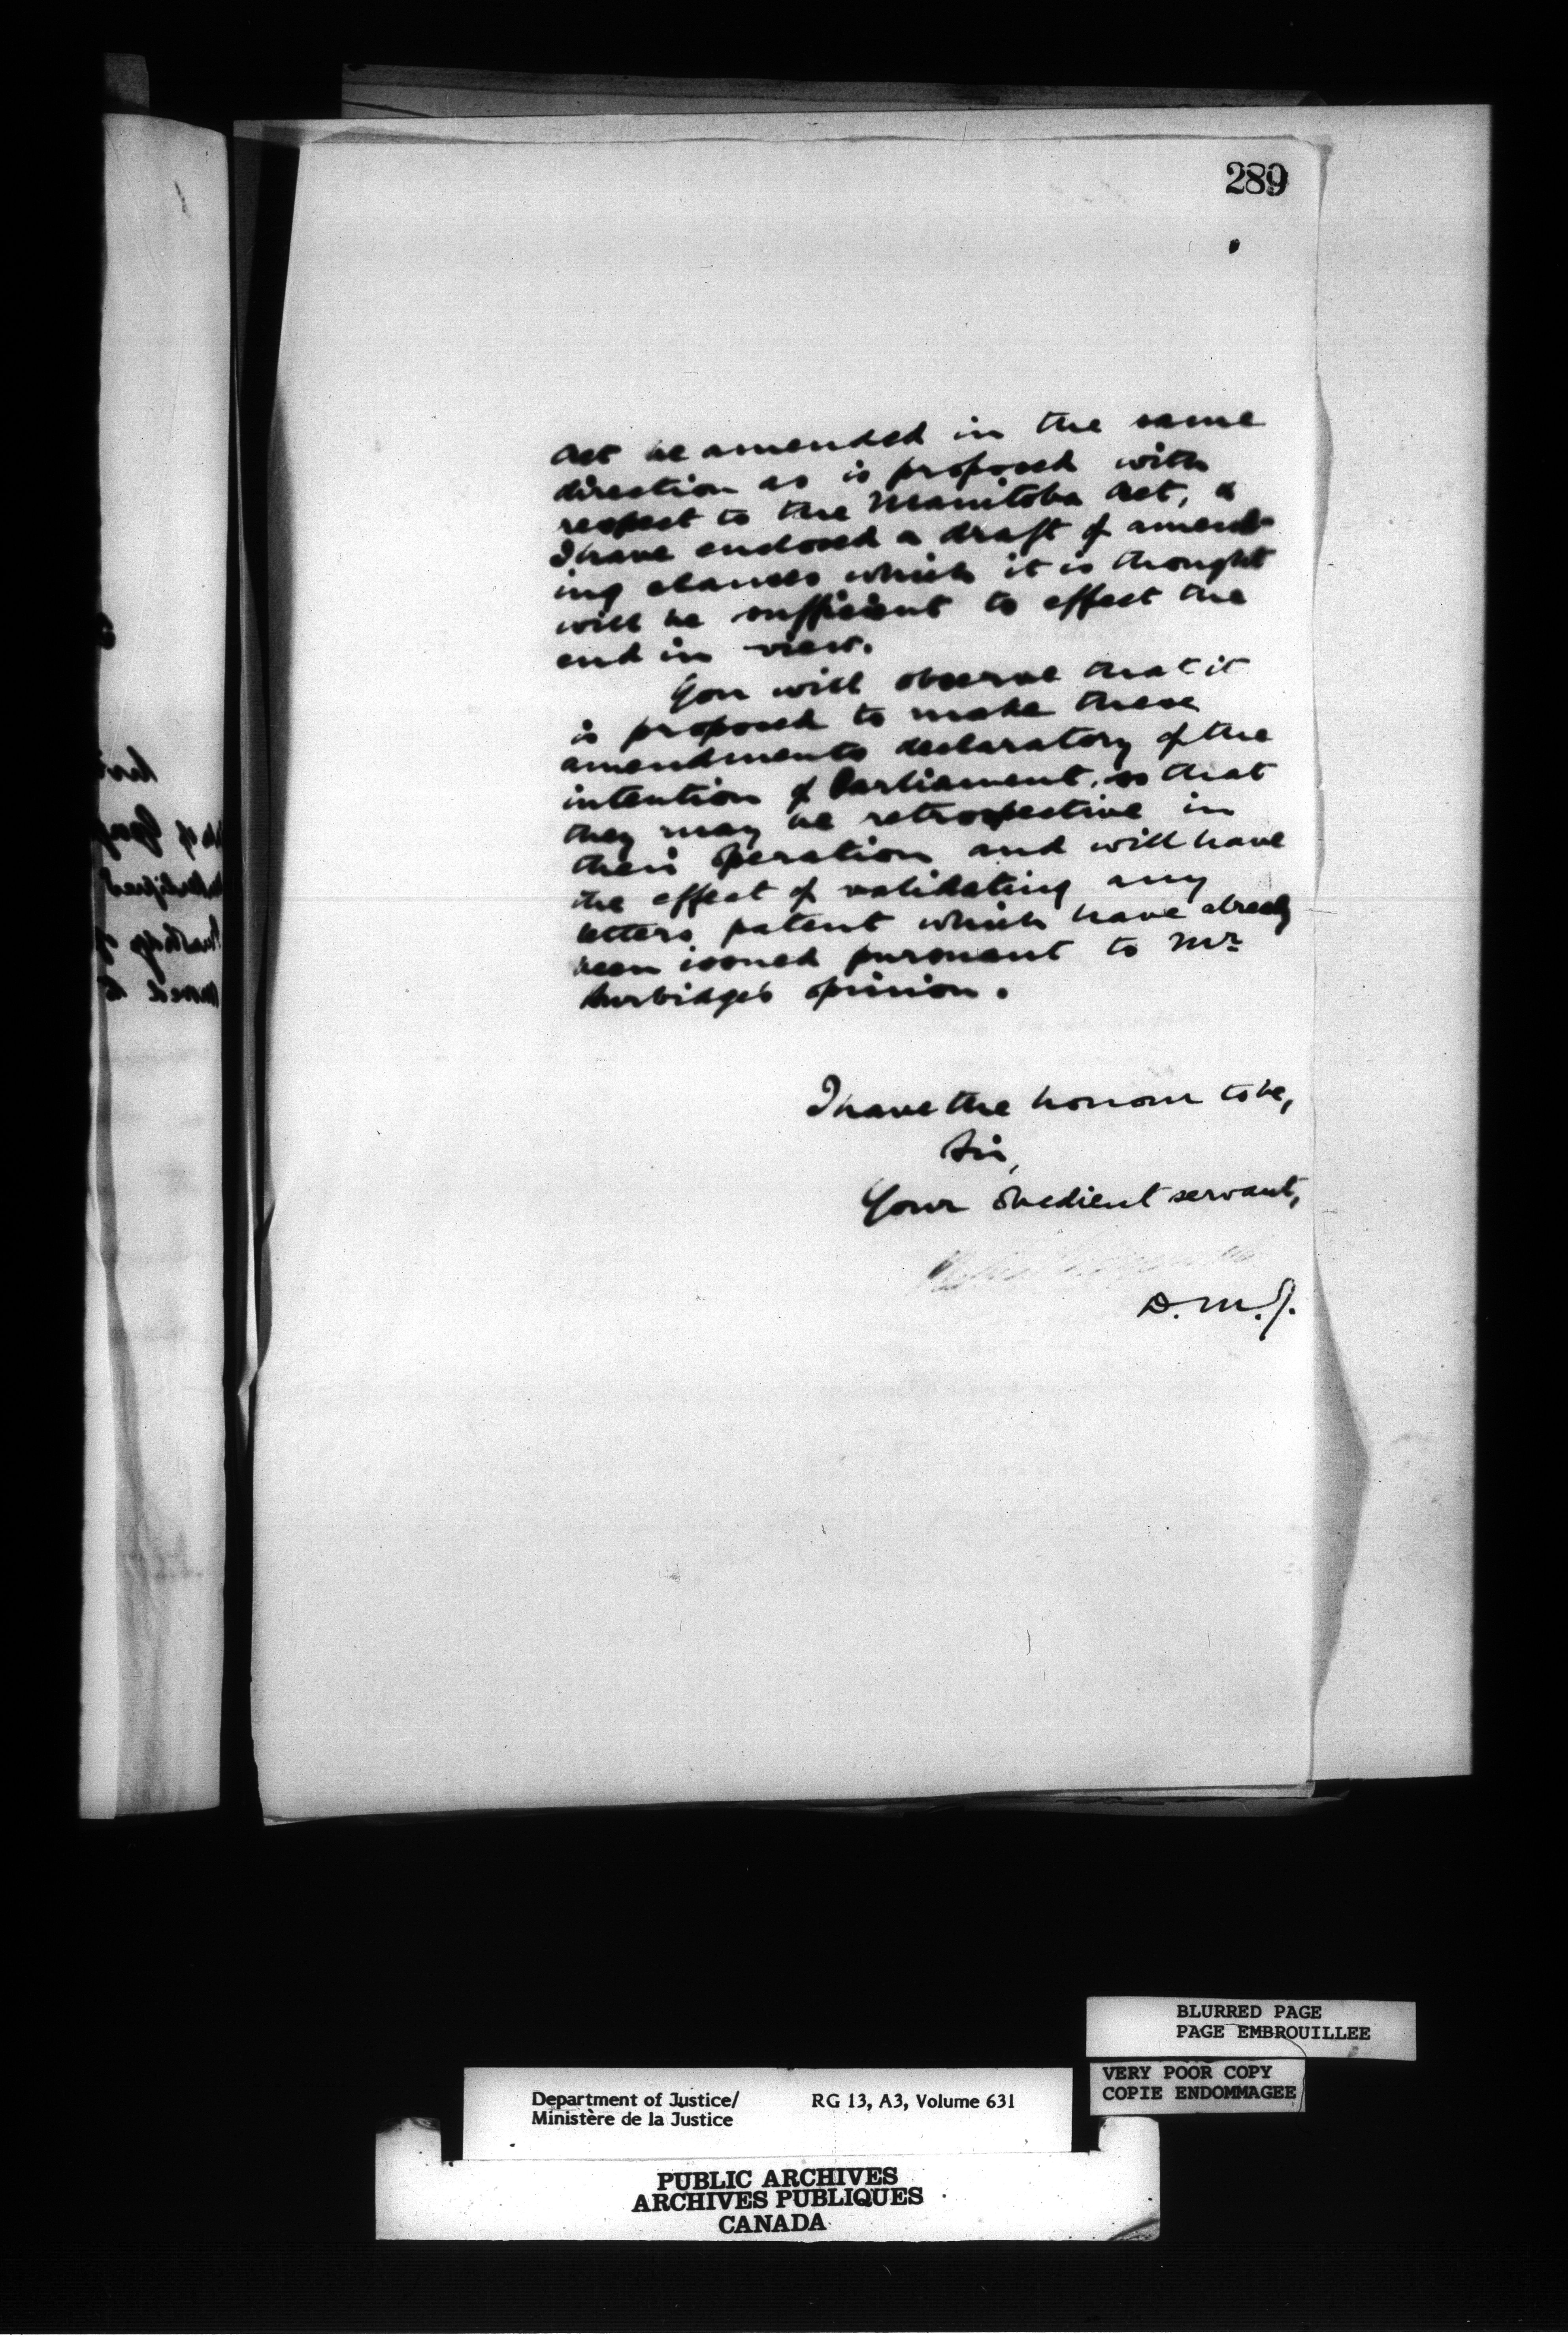 289
Act be amended in the same
direction as is proposed with
respect to the Manitoba Act, &
I have enclosed a draft of amend-
ing clauses which it is thought
will be sufficient to effect the
end in view.
You will observe that it
is proposed to make these
amendments declaratory of the
intention of Parliament, so that
they may be retrospective in
their operation and will have
the effect of validating any
letters patent which have already
been issued pursuant to Mr
Burbidge's opinion.
I have the honour to be,
Sir,
Your obedient servant,
D.M.J.
BLURRED PAGE
PAGE EMBROUILLEE
VERY POOR COPY
COPIE ENDOMMAGEE
Department of Justice/ RG 13, A3, Volume 631
Ministère de la Justice
PUBLIC ARCHIVES
ARCHIVES PUBLIQUES
CANADA